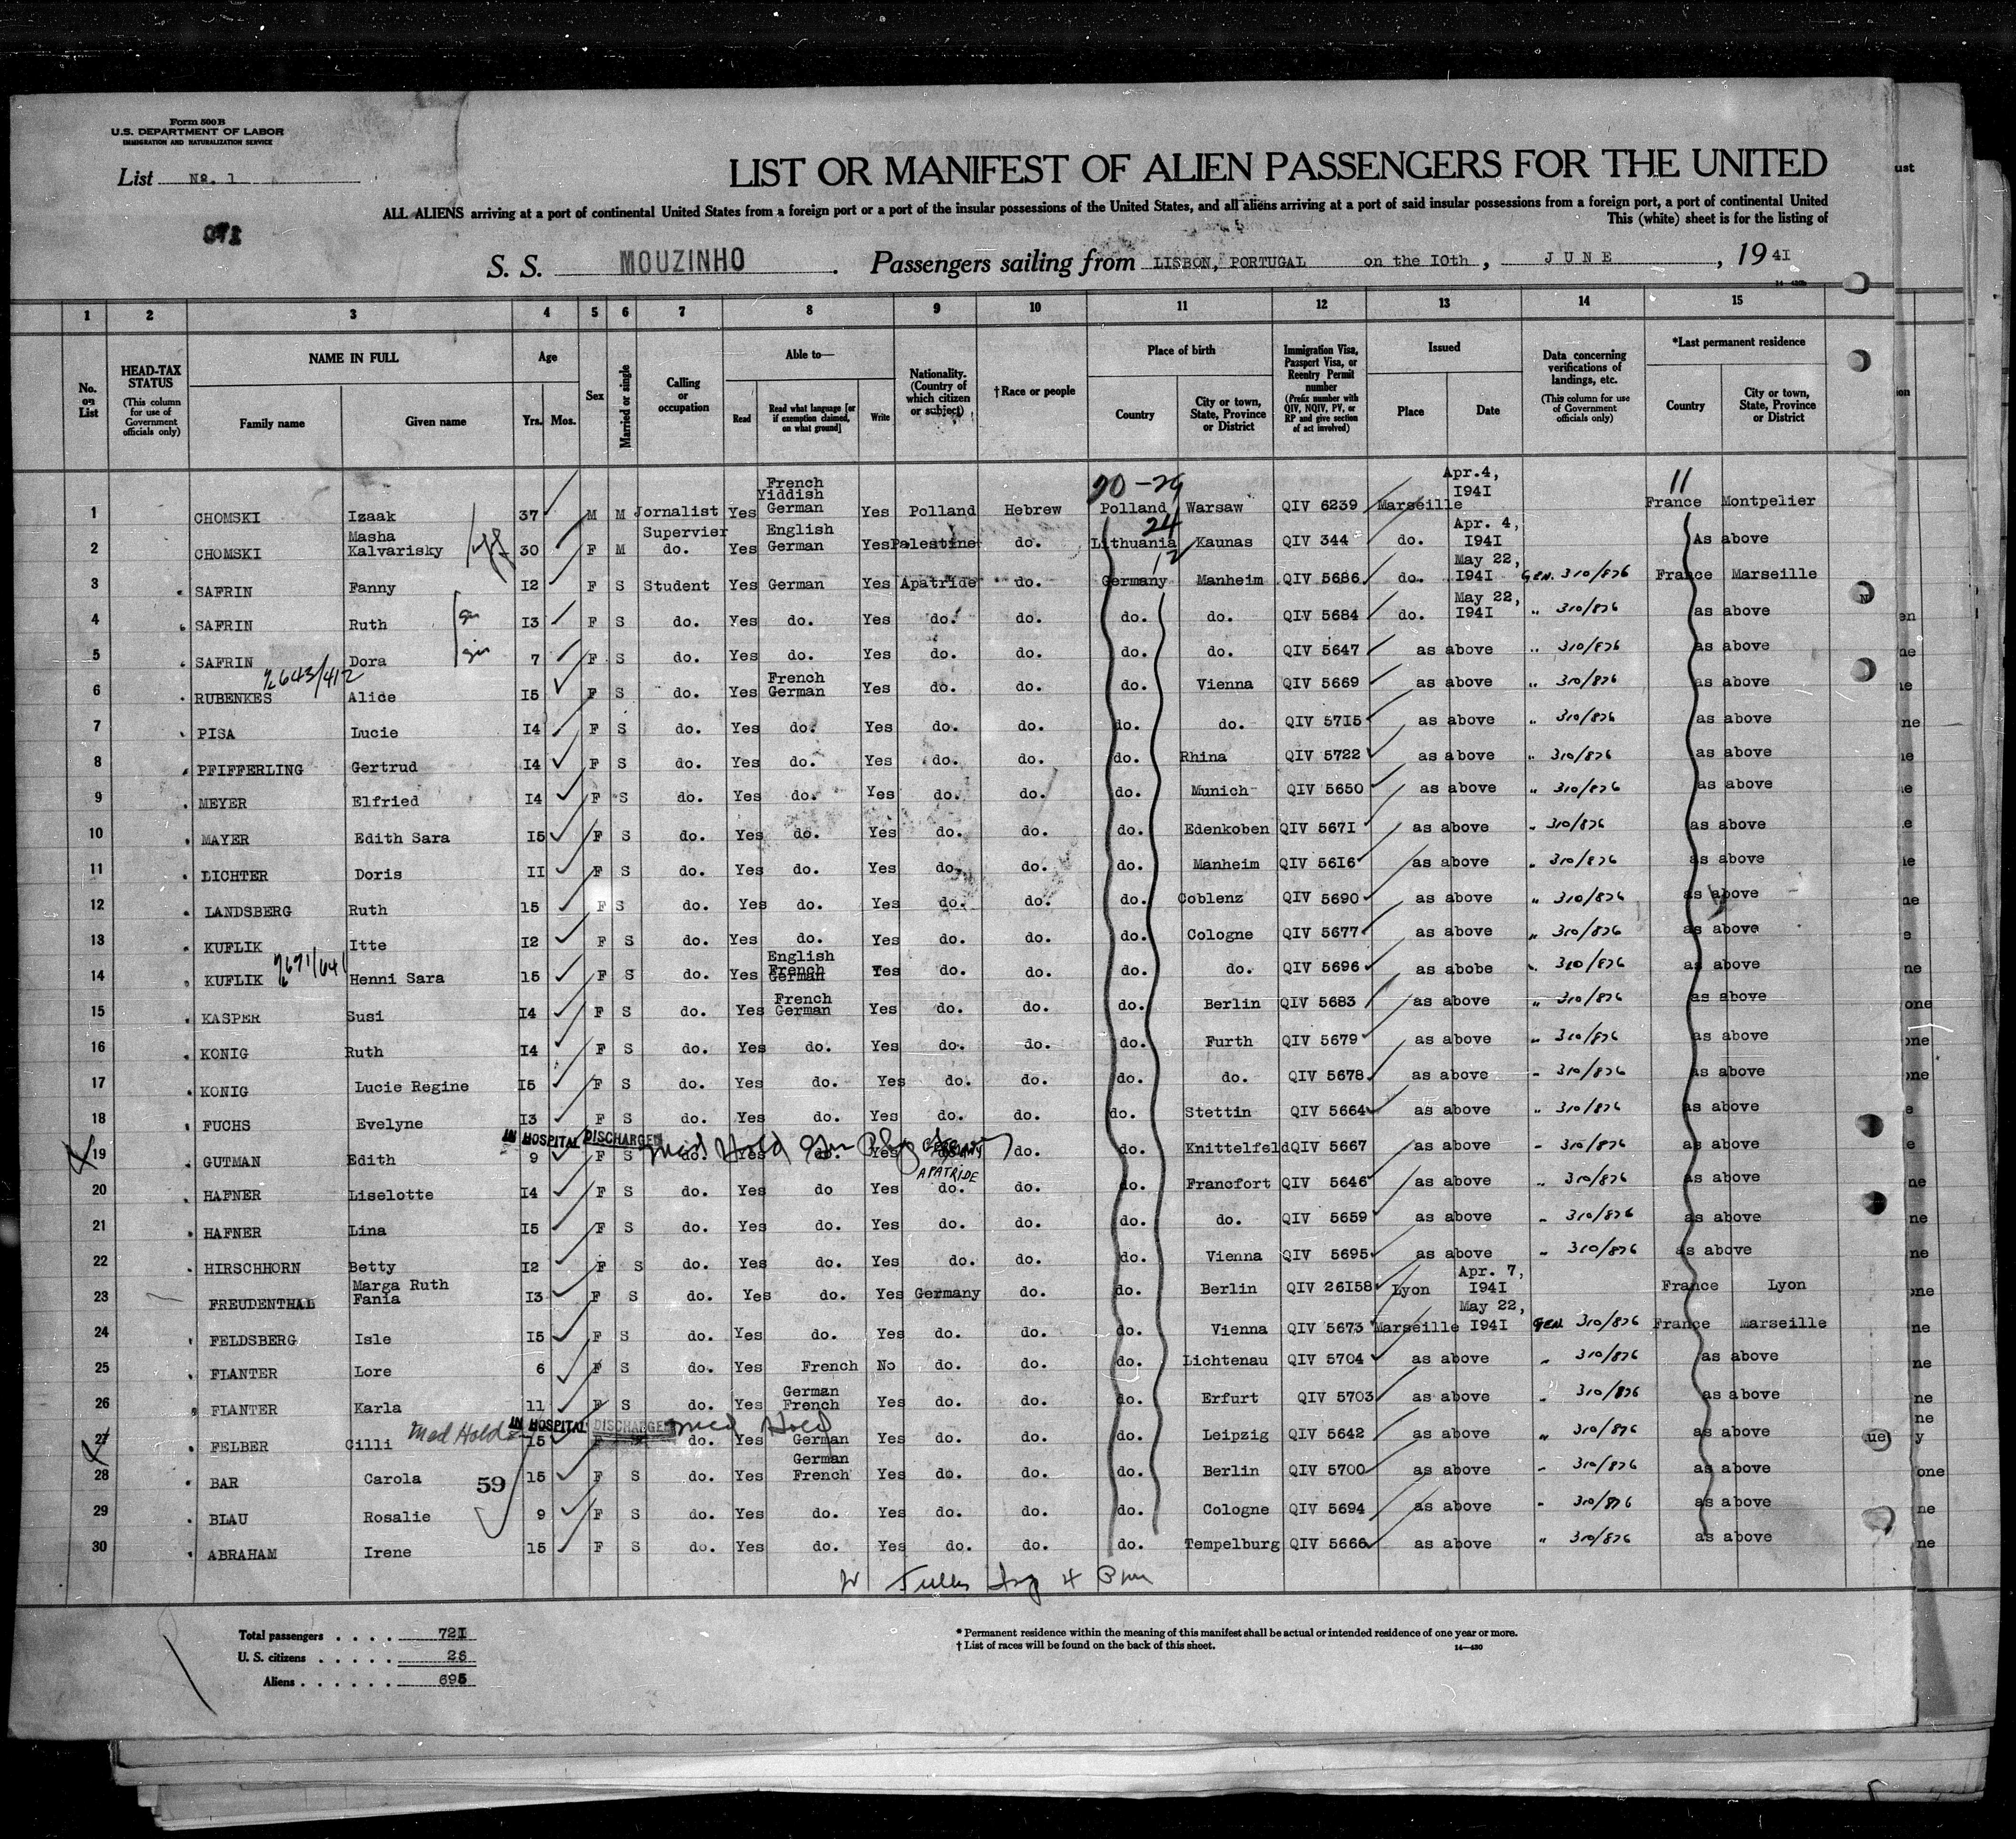 Form 500B
U.S. DEPARTMENT OF LABOR
IMMIGRATION AND NATURALIZATION SERVICE
List No. 1
LIST OR MANIFEST OF ALIEN PASSENGERS FOR THE UNITED
ALL ALIENS arriving at a port of continental United States from a foreign port or a port of the insular possessions of the United States, and all aliens arriving at a port of said insular possessions from a foreign port, a port of continental United
This (white) sheet is for the listing of
S. S. MOUZINHO . Passengers sailing from LISBON, PORTUGAL on the I0th , JUNE , 19 4I
1 2 3 4 5 6 7 8 9 10 11 12 13 14 15
No. on List
HEAD-TAX STATUS (This column for use of Government officials only)
NAME IN FULL Family name Given name
Age Yrs. Mos.
Sex
Married or single
Calling or occupation
Able to— Read Read what language [or if exemption claimed, on what ground] Write
Nationality. (Country of which citizen or subject)
†Race or people
Place of birth Country City or town, State, Province or District
Immigration Visa, Passport Visa, or Reentry Permit number (Prefix number with QIV, NQIV, PV, or RP and give section of act involved)
Issued Place Date
Data concerning verifications of landings, etc. (This column for use of Government officials only)
*Last permanent residence Country City or town, State, Province or District
1 CHOMSKI Izaak 37 M M Jornalist Yes French Yiddish German Yes Polland Hebrew Polland Warsaw QIV 6239 Marseille Apr.4, I94I France Montpelier
2 CHOMSKI Masha Kalvarisky 30 F M Supervier do. Yes English German Yes Palestine do. Lithuania Kaunas QIV 344 do. Apr. 4, I94I As above
3 SAFRIN Fanny I2 F S Student Yes German Yes Apatride do. Germany Manheim QIV 5686 do. May 22, I94I GEN. 310/876 France Marseille
4 SAFRIN Ruth I3 F S do. Yes do. Yes do. do. do. do. QIV 5684 do. May 22, I94I " 310/876 as above
5 SAFRIN Dora 7 F S do. Yes do. Yes do. do. do. do. QIV 5647 as above " 310/876 as above
6 RUBENKES Alice I5 F S do. Yes French German Yes do. do. do. Vienna QIV 5669 as above " 310/876 as above
7 PISA Lucie I4 F S do. Yes do. Yes do. do. do. do. QIV 57I5 as above " 310/876 as above
8 PFIFFERLING Gertrud I4 F S do. Yes do. Yes do. do. do. Rhina QIV 5722 as above " 310/876 as above
9 MEYER Elfried I4 F S do. Yes do. Yes do. do. do. Munich QIV 5650 as above " 310/876 as above
10 MAYER Edith Sara I5 F S do. Yes do. Yes do. do. do. Edenkoben QIV 567I as above " 310/876 as above
11 LICHTER Doris II F S do. Yes do. Yes do. do. do. Manheim QIV 56I6 as above " 310/876 as above
12 LANDSBERG Ruth 15 F S do. Yes do. Yes do. do. do. Coblenz QIV 5690 as above " 310/876 as above
13 KUFLIK Itte I2 F S do. Yes do. Yes do. do. do. Cologne QIV 5677 as above " 310/876 as above
14 KUFLIK Henni Sara 15 F S do. Yes English French German Yes do. do. do. do. QIV 5696 as abobe " 310/876 as above
15 KASPER Susi I4 F S do. Yes French German Yes do. do. do. Berlin QIV 5683 as above " 310/876 as above
16 KONIG Ruth I4 F S do. Yes do. Yes do. do. do. Furth QIV 5679 as above " 310/876 as above
17 KONIG Lucie Regine I5 F S do. Yes do. Yes do. do. do. do. QIV 5678 as above " 310/876 as above
18 FUCHS Evelyne I3 F S do. Yes do. Yes do. do. do. Stettin QIV 5664 as above " 310/876 as above
IN HOSPITAL DISCHARGED Med Hold
19 GUTMAN Edith 9 F S do. Yes do. Yes APATRIDE do. do. Knittelfeld QIV 5667 as above " 310/876 as above
20 HAFNER Liselotte I4 F S do. Yes do Yes do. do. do. Francfort QIV 5646 as above " 310/876 as above
21 HAFNER Lina I5 F S do. Yes do. Yes do. do. do. do. QIV 5659 as above " 310/876 as above
22 HIRSCHHORN Betty I2 F S do. Yes do. Yes do. do. do. Vienna QIV 5695 as above " 310/876 as above
23 FREUDENTHAL Marga Ruth Fania I3 F S do. Yes do. Yes Germany do. do. Berlin QIV 26I58 Lyon Apr. 7, I94I France Lyon
24 FELDSBERG Isle I5 F S do. Yes do. Yes do. do. do. Vienna QIV 5673 Marseille May 22, I94I GEN 310/876 France Marseille
25 FLANTER Lore 6 F S do. Yes French No do. do. do. Lichtenau QIV 5704 as above " 310/876 as above
26 FLANTER Karla 11 F S do. Yes German French Yes do. do. do. Erfurt QIV 5703 as above " 310/876 as above
Med Hold IN HOSPITAL DISCHARGED Med Hold
27 FELBER Cilli 15 F S do. Yes German Yes do. do. do. Leipzig QIV 5642 as above " 310/876 as above
28 BAR Carola 59 15 F S do. Yes German French Yes do. do. do. Berlin QIV 5700 as above " 310/876 as above
29 BLAU Rosalie 9 F S do. Yes do. Yes do. do. do. Cologne QIV 5694 as above " 310/876 as above
30 ABRAHAM Irene 15 F S do. Yes do. Yes do. do. do. Tempelburg QIV 5666 as above " 310/876 as above
Total passengers . . . . 72I
U. S. citizens . . . . . 26
Aliens . . . . . . 695
* Permanent residence within the meaning of this manifest shall be actual or intended residence of one year or more.
† List of races will be found on the back of this sheet. 14—430